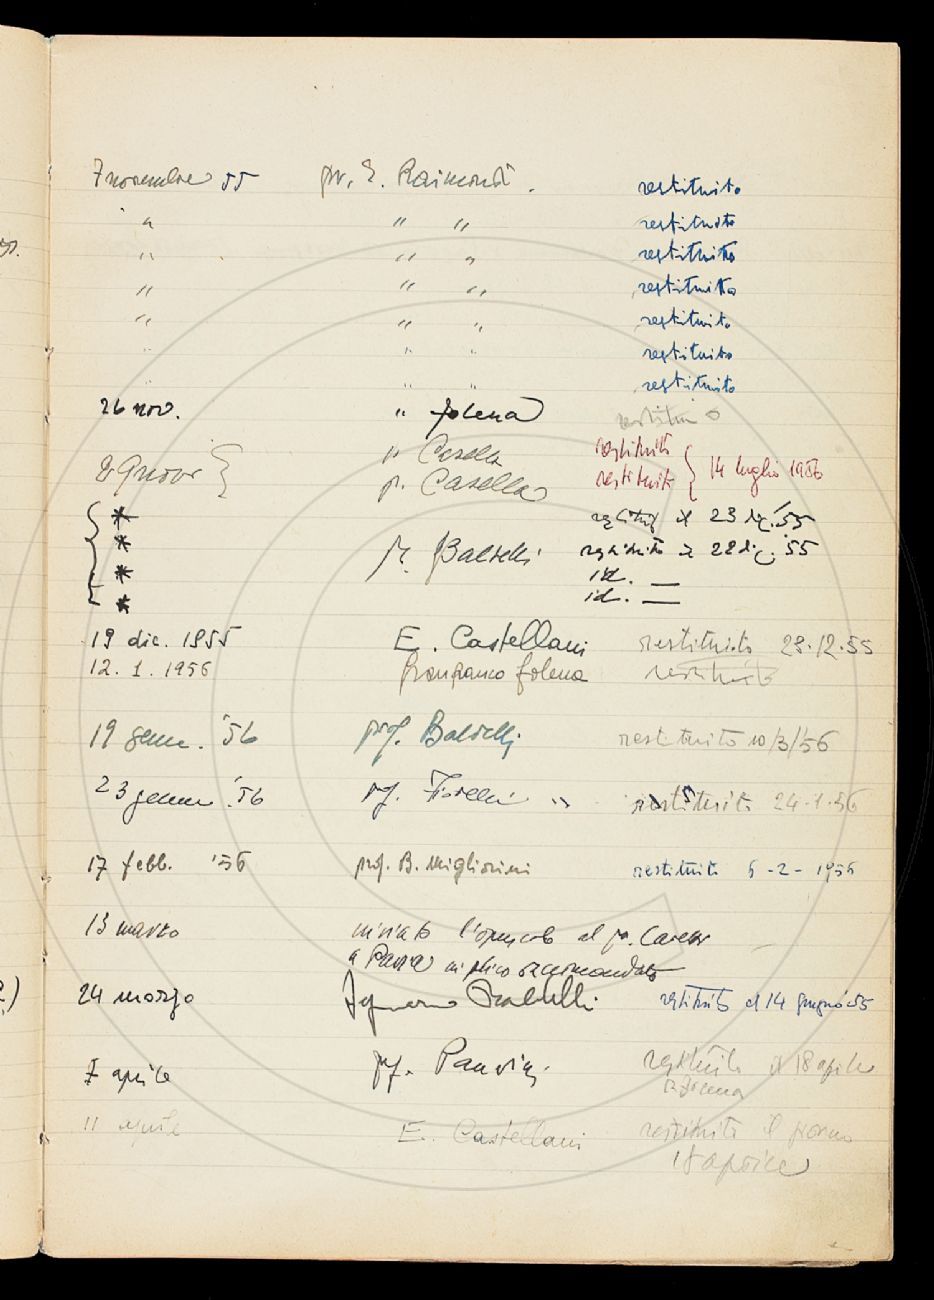 7 novembre 55 pr. E. Raimondi. restituito
" " " restituito
" " " restituito
" " " restituito
" " " restituito
" " " restituito
" " " restituito
26 nov. " Folena
" Casella restituito
p. Casella restituito } 14 luglio 1956
* restituito il 23 dic. '55
* Baldelli restituito il 28 dic. '55
* id. —
* id. —
19 dic. 1955 E. Castellani restituito 28.12.55
12.1.1956 Gianfranco Folena restituito
19 genn. '56 prof. Baldelli restituito 10/3/56
23 genn. '56 Fiorelli " restituito 24.1.56
17 febb. '56 prof. B. Migliorini restituito 6-2-1956
13 marzo inviato l'opuscolo al pr. Caretti
a Pavia in plico raccomandato
24 marzo Ignazio Baldelli restituito il 14 giugno 55
7 aprile prof. restituito il 18 aprile
11 aprile E. Castellani restituito il giorno
18 aprile